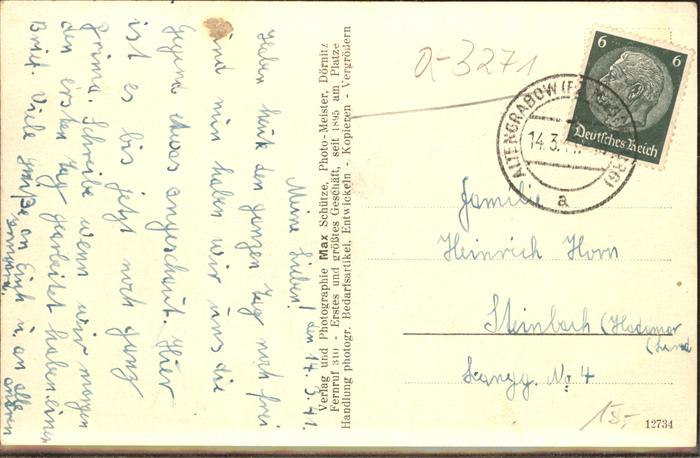 Meine Lieben! den 17.3.41.
Haben heute den ganzen Tag noch frei
und nun haben wir uns die
Gegend etwas angeschaut. Hier
ist es bis jetzt noch ganz
prima. Schreibe wenn wir morgen
den ersten Tag gearbeitet haben einen
Brief. Viele Grüße an Euch u. an alle
anderen
Verlag und Photographie Max Schütze, Photo-Meister, Dörnitz
Fernruf 310 - Erstes und größtes Geschäft, seit 1895 am Platze
Handlung photogr. Bedarfsartikel, Entwickeln - Kopieren - Vergrößern
a-3271
6 6
Deutsches Reich
ALTENGRABOW
14.3.
a
Familie
Heinrich Horn
Steinbach (Hadamar
(Land
Langg. No 4
15,-
12734